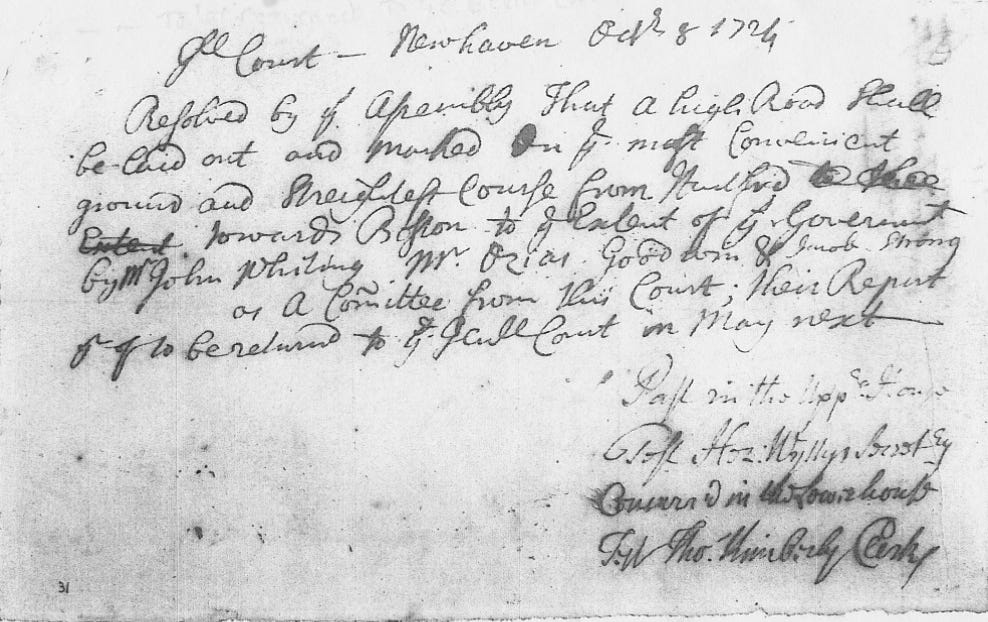 Gll Court – Newhaven Octbr 8 1724
Resolved by ye Assembly That a high Road Shall
be laid out and marked On ye most Convenient
ground and Streightest Course from Hartford
Extent towards Boston to ye Extent of ye Governmt
by Mr John Whiting Mr. Ozias Goodwin & Jacob Strong
as A Comittee from this Court; their Report
to be returnd to ye Genll Court in May next
Past in the Uppr House
Test Hez: Wyllys Secretry
Concurr'd in the Lower house
Test Tho. Kimberly Clerk
31